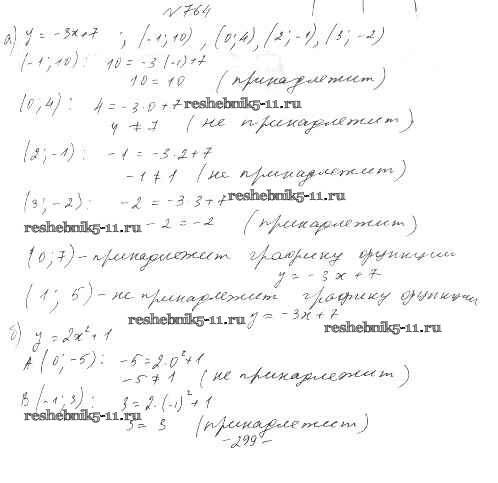 №764
а) y = -3x+7 ; (-1;10), (0;4), (2;-1), (3;-2)
(-1;10): 10 = -3·(-1)+7
10 = 10 (принадлежит)
(0,4): 4 = -3·0+7 reshebnik5-11.ru
4 ≠ 7 (не принадлежит)
(2;-1): -1 = -3·2+7
-1 ≠ 1 (не принадлежит)
(3;-2): -2 = -3 3+7 reshebnik5-11.ru
reshebnik5-11.ru -2 = -2 (принадлежит)
(0;7) - принадлежит графику функции
y = -3x+7
(1; 5) - не принадлежит графику функции
reshebnik5-11.ru y = -3x+7 reshebnik5-11.ru
б) y = 2x²+1
A(0;-5): -5 = 2·0²+1
-5 ≠ 1 (не принадлежит)
B(-1;3): 3 = 2·(-1)²+1
reshebnik5-11.ru 3 = 3 (принадлежит)
-299-